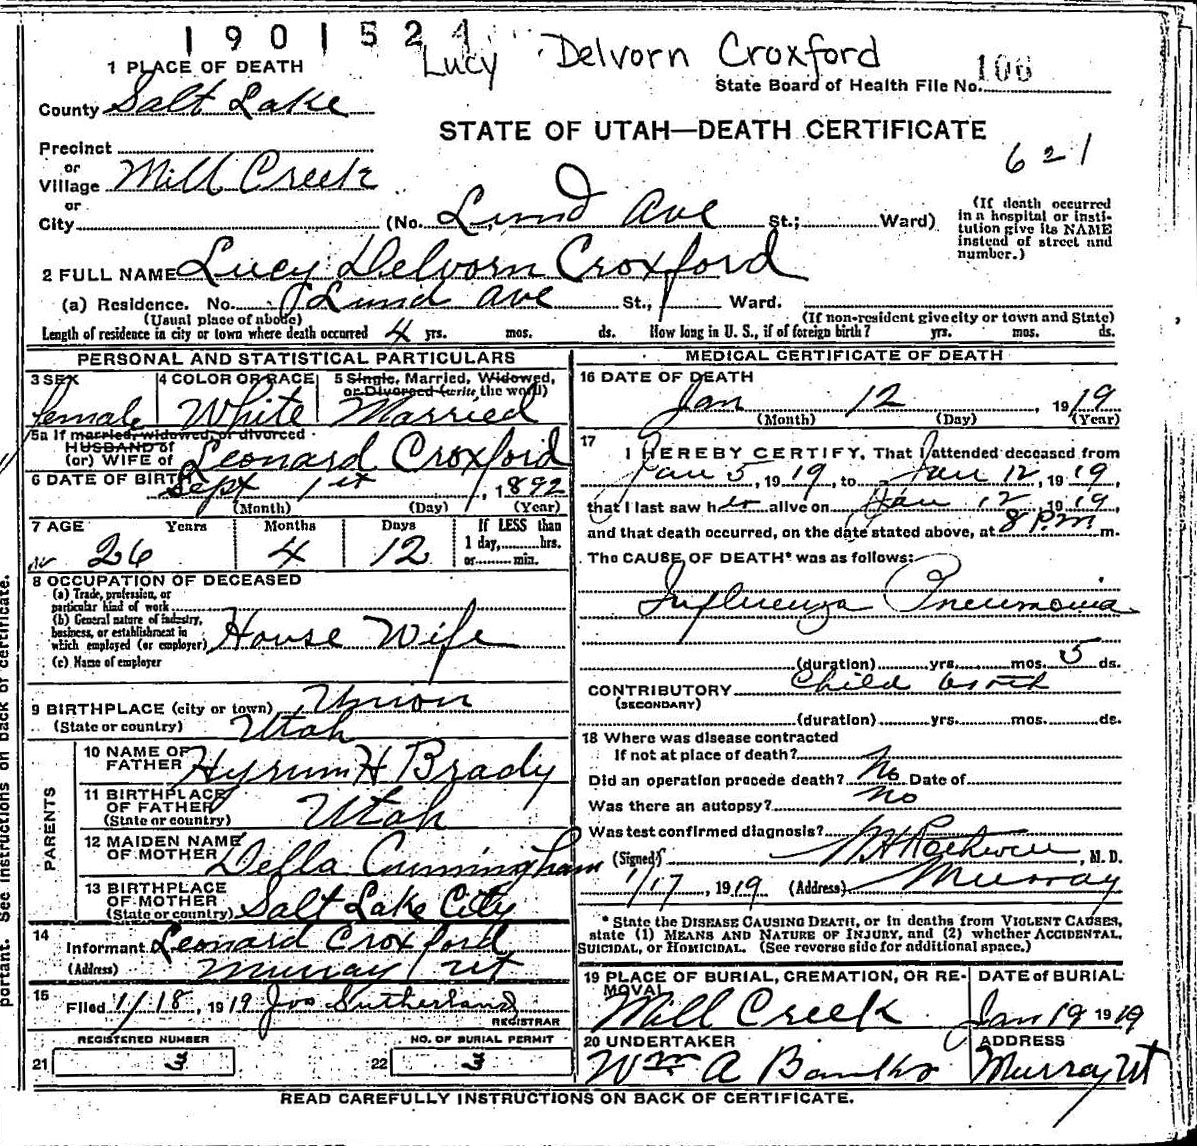 1901524
Lucy Delvorn Croxford
1 PLACE OF DEATH
State Board of Health File No. 106
County Salt Lake
STATE OF UTAH—DEATH CERTIFICATE
621
Precinct
or
Village Mill Creek
or
City (No. Lund Ave St.; Ward)
(If death occurred in a hospital or insti-
tution give its NAME
instead of street and
number.)
2 FULL NAME Lucy Delvorn Croxford
(a) Residence. No. Lund Ave St., Ward.
(Usual place of abode) (If non-resident give city or town and State)
Length of residence in city or town where death occurred 4 yrs. mos. ds. How long in U. S., if of foreign birth? yrs. mos. ds.
PERSONAL AND STATISTICAL PARTICULARS
3 SEX
female
4 COLOR OR RACE
White
5 Single, Married, Widowed,
or Divorced (write the word)
Married
5a If married, widowed, or divorced
HUSBAND of
(or) WIFE of Leonard Croxford
6 DATE OF BIRTH
Sept 1st, 1892
(Month) (Day) (Year)
7 AGE Years Months Days If LESS than
1 day, hrs.
or min.
26 4 12
8 OCCUPATION OF DECEASED
(a) Trade, profession, or
particular kind of work
(b) General nature of industry,
business, or establishment in
which employed (or employer) House Wife
(c) Name of employer
9 BIRTHPLACE (city or town) Union
(State or country) Utah
PARENTS
10 NAME OF
FATHER Hyrum H Brady
11 BIRTHPLACE
OF FATHER
(State or country) Utah
12 MAIDEN NAME
OF MOTHER Della Cunningham
13 BIRTHPLACE
OF MOTHER
(State or country) Salt Lake City
14
Informant Leonard Croxford
(Address) Murray Ut
15
Filed 1/18, 1919 Jos Sutherland
REGISTRAR
REGISTERED NUMBER
21 3
NO. OF BURIAL PERMIT
22 3
MEDICAL CERTIFICATE OF DEATH
16 DATE OF DEATH
Jan 12, 1919
(Month) (Day) (Year)
17
I HEREBY CERTIFY, That I attended deceased from
Jan 5, 1919, to Jan 12, 1919,
that I last saw her alive on Jan 12 1919
and that death occurred, on the date stated above, at 8 P.m m.
The CAUSE OF DEATH* was as follows:
Influenza Pneumonia
(duration) yrs. mos. 5 ds.
CONTRIBUTORY Child birth
(SECONDARY)
(duration) yrs. mos. ds.
18 Where was disease contracted
If not at place of death?
Did an operation precede death? No Date of
Was there an autopsy? no
Was test confirmed diagnosis?
(Signed) , M. D.
1/17, 1919 (Address) Murray
* State the DISEASE CAUSING DEATH, or in deaths from VIOLENT CAUSES,
state (1) MEANS AND NATURE OF INJURY, and (2) whether ACCIDENTAL,
SUICIDAL, or HOMICIDAL. (See reverse side for additional space.)
19 PLACE OF BURIAL, CREMATION, OR RE-
MOVAL
Mill Creek
DATE of BURIAL
Jan 19 1919
20 UNDERTAKER
Wm A Banks
ADDRESS
Murray Ut
READ CAREFULLY INSTRUCTIONS ON BACK OF CERTIFICATE.
portant. See instructions on back of certificate.